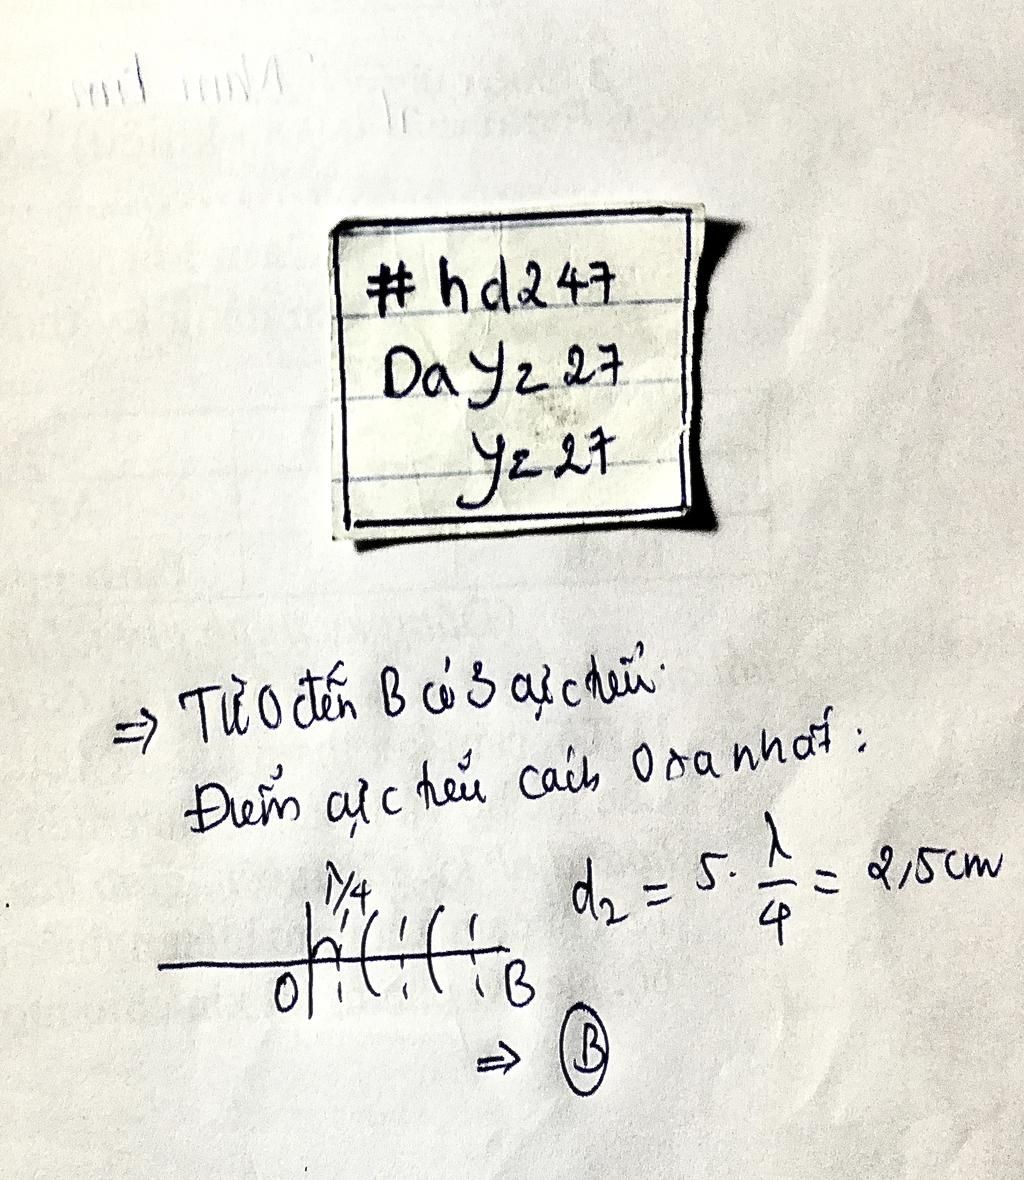 #hd247
Dayz27
yz27
⇒ Từ O đến B có 3 cực tiểu.
Điểm cực tiểu cách O xa nhất:
λ/4
d₂ = 5. λ/4 = 2,5cm
O B
⇒ B